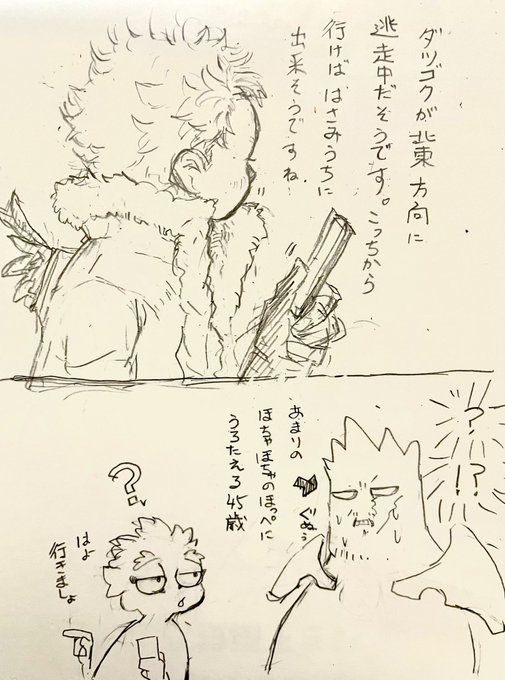 ダツゴクが北東方向に
逃走中だそうです。こっちから
行けば はさみうちに
出来そうですね
?
!?
あまりの
ぽちゃぽちゃのほっぺに
うろたえる45歳
ぐぬぅ
?
はよ
行きましょ